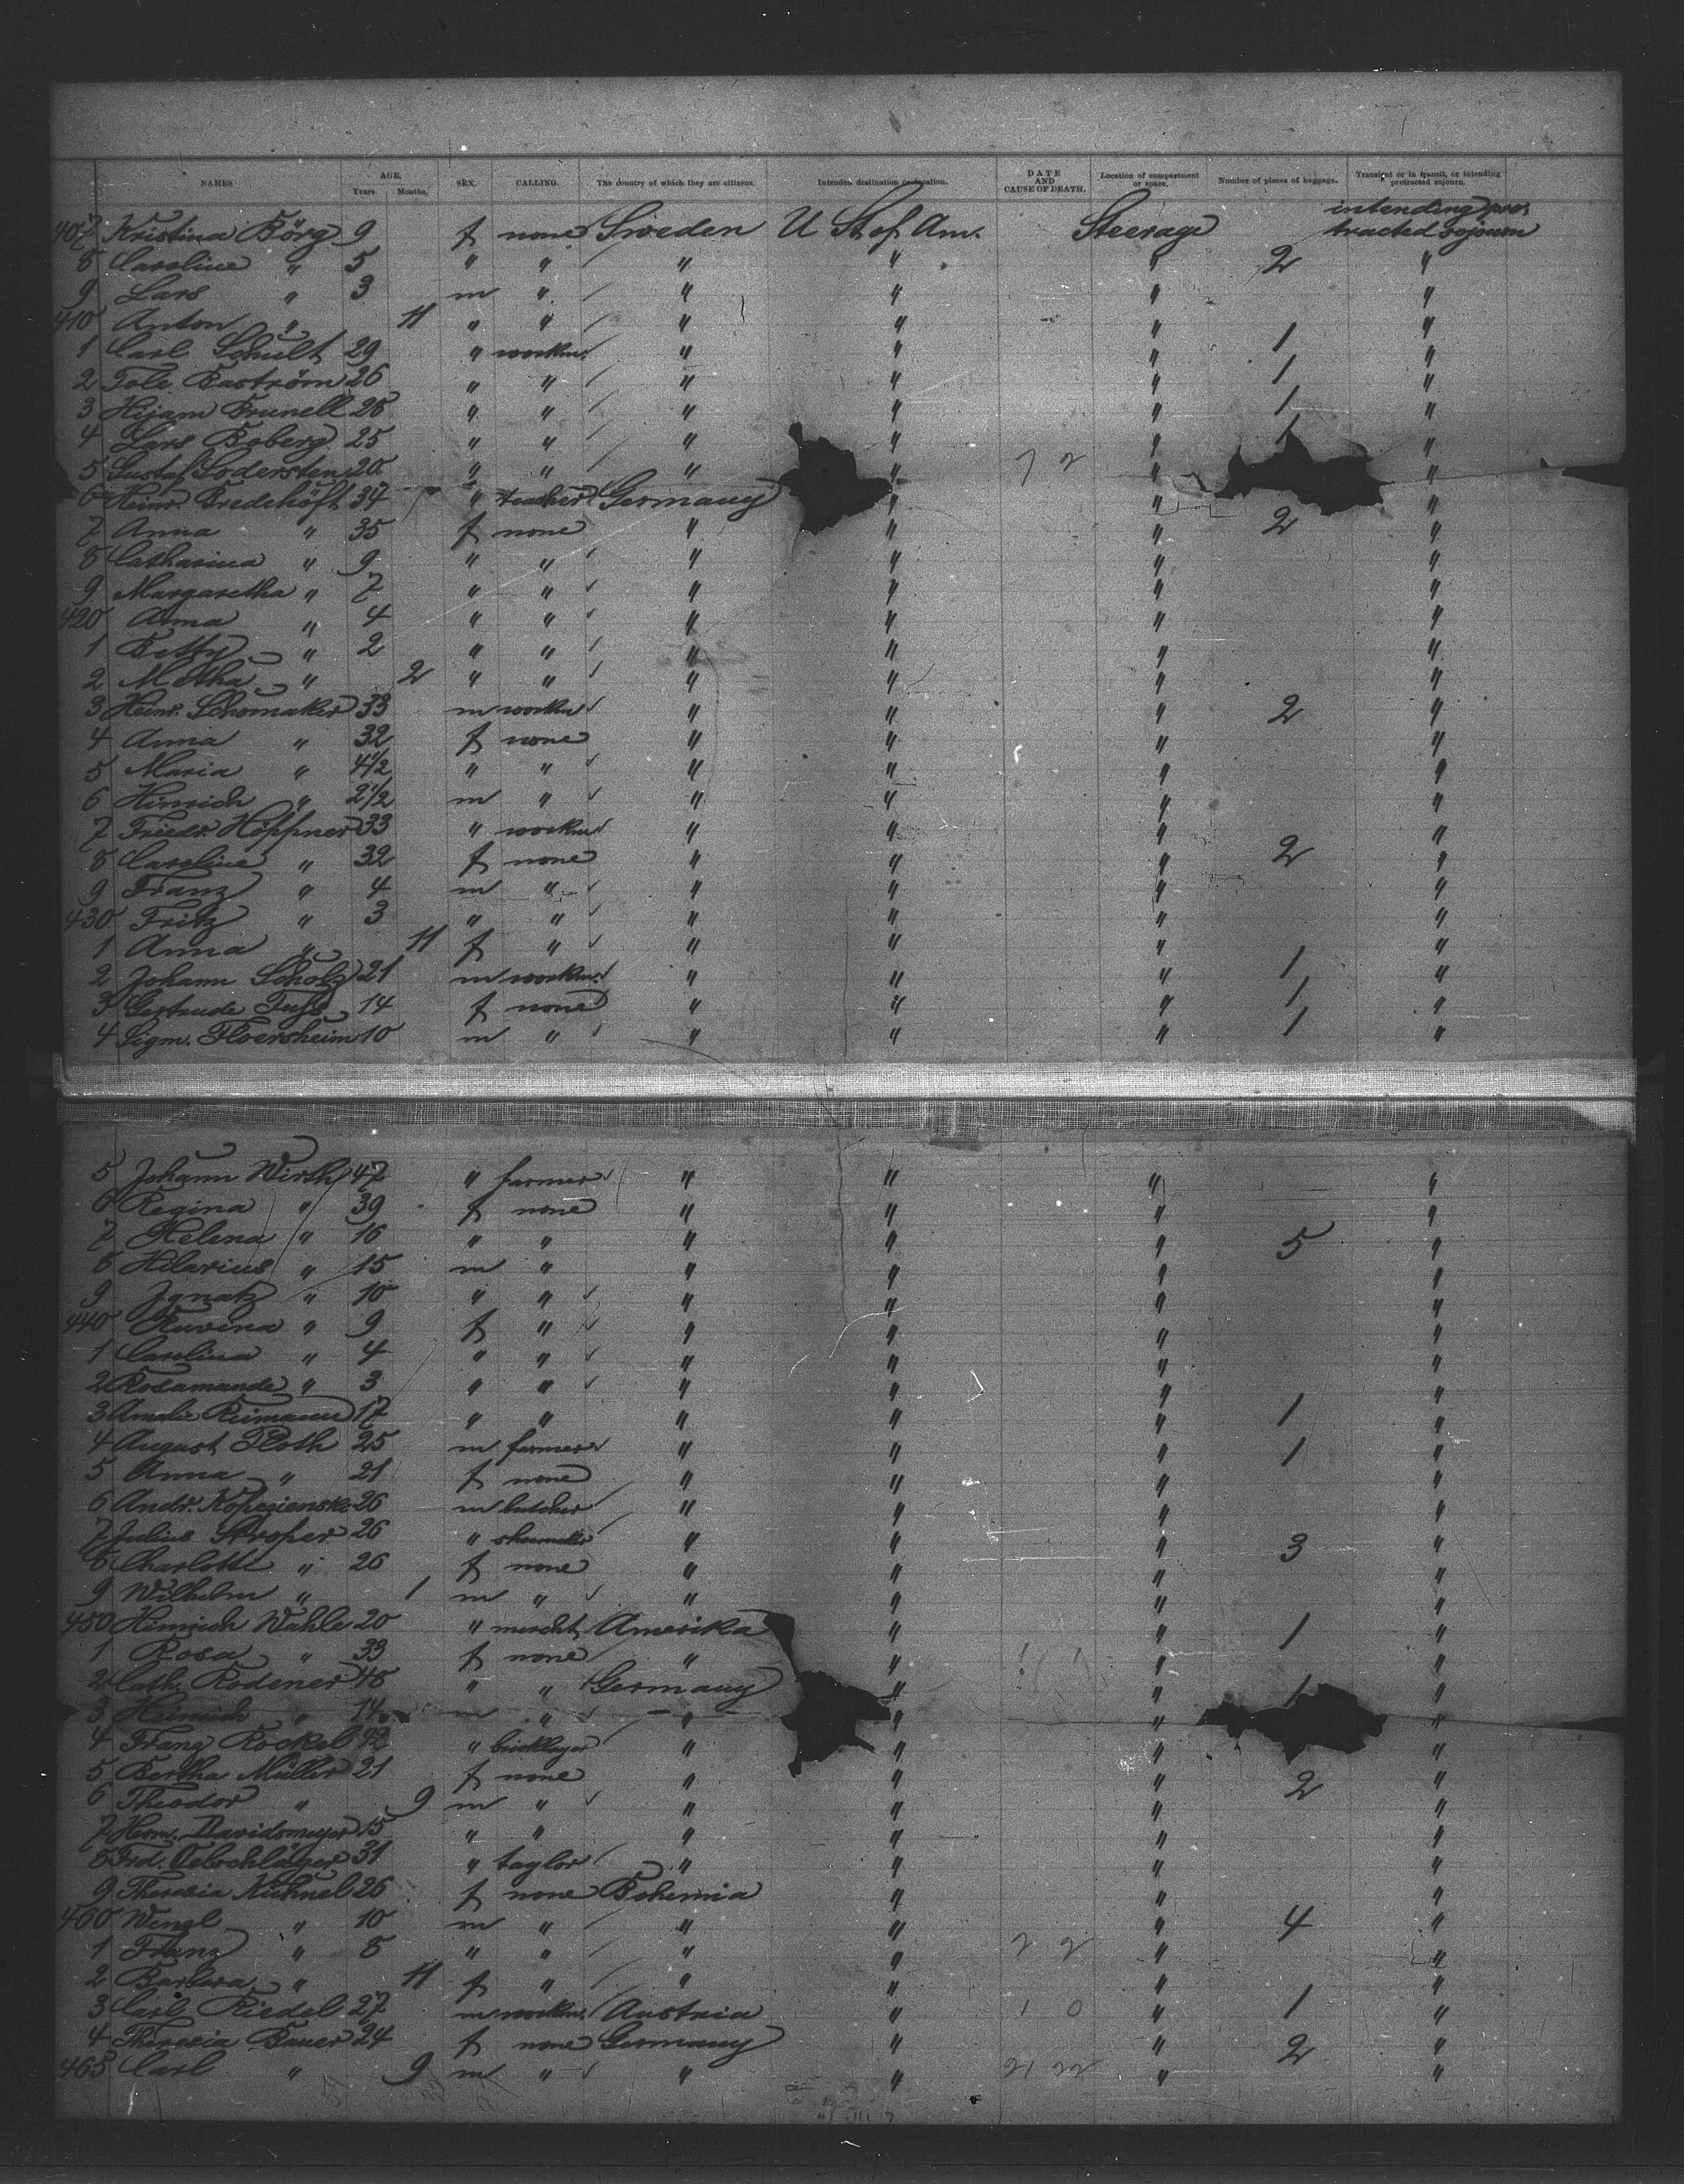 NAMES AGE. Years. Months. SEX. CALLING. The country of which they are citizens. Intended destination or location. DATE AND CAUSE OF DEATH. Location of compartment or space. Number of pieces of baggage. Transient or in transit, or intending protracted sojourn.
407 Kristina Börg 9 f none Sweden U St of Am. Steerage intending pro-tracted sojourn
8 Caroline " 5 " " " " " 2 "
9 Lars " 3 m " " " " "
410 Anton " 11 " " " " " "
1 Carl Schult 29 " workm. " " " 1 "
2 Tole Baström 26 " " " " " 1 "
3 Hijam Brunell 28 " " " " " 1 "
4 Lars Boberg 25 " " " " 1 "
5 Gustaf Sodersten 20 " " " " 7 2 " "
6 Heinr. Bredehöft 34 " teacher Germany " " "
7 Anna " 35 f none " " " 2 "
8 Catharina " 9 " " " " " "
9 Margaretha " 7 " " " " " "
420 Alma " 4 " " " " " "
1 Betty " 2 " " " " " "
2 Metha " 2 " " " " " "
3 Heinr. Schomaker 33 m workm. " " " 2 "
4 Anna " 32 f none " " " "
5 Maria " 4 1/2 " " " " " "
6 Hinrich " 2 1/2 m " " " " "
7 Friedr. Höppner 33 " workm " " " "
8 Caroline " 32 f none " " " 2 "
9 Franz " 4 m " " " " "
430 Fritz " 3 " " " " " "
1 Anna " 11 f " " " " "
2 Johann Scholz 21 m workm. " " " 1 "
3 Gertrude 14 f none " " " 1 "
4 Sigm. Floersheim 10 m " " " " 1 "
5 Johann Wirth 47 " farmer " " " "
6 Regina " 39 f none " " " "
7 Helena " 16 " " " " " 5 "
8 Hilarius " 15 m " " " " "
9 Ignatz " 10 " " " " " "
440 " 9 f " " " " "
1 Carolina " 4 " " " " " "
2 Rosamunde " 3 " " " " " "
3 Amalie Reimann 17 " " " " " 1 "
4 August Ploth 25 m farmer " " " 1 "
5 Anna " 21 f none " " " "
6 Andr. 26 m butcher " " " "
7 Julius 26 " shoemaker " " " 3 "
8 Charlotte " 26 f none " " " "
9 Wilhelm " 1 m " " " " "
450 Hinrich Wahle 20 " mercht Amerika " " 1 "
1 Rosa " 33 f none " " " "
2 Cath. Rodener 48 " " Germany " " 1 "
3 Heinrich " 14 m " " " " "
4 Franz Rockel 42 " bricklayer " " " "
5 Bertha Müller 21 f none " " " 2 "
6 Theodor " 9 m " " " " "
7 Herm. Davidsmeyer 15 " " " " " "
8 Frd. Oelschläger 31 " taylor " " " "
9 Theresia Kühnel 26 f none Bohemia " " "
460 Wenzl " 10 m " " " " 4 "
1 Franz " 8 " " " " 2 2 " "
2 Barbara " 11 f " " " " "
3 Carl Riedel 27 m workm. Austria " 1 0 " 1 "
4 Theresia Bauer 24 f none Germany " " 2 "
465 Carl " 9 m " " " 21 22 " "